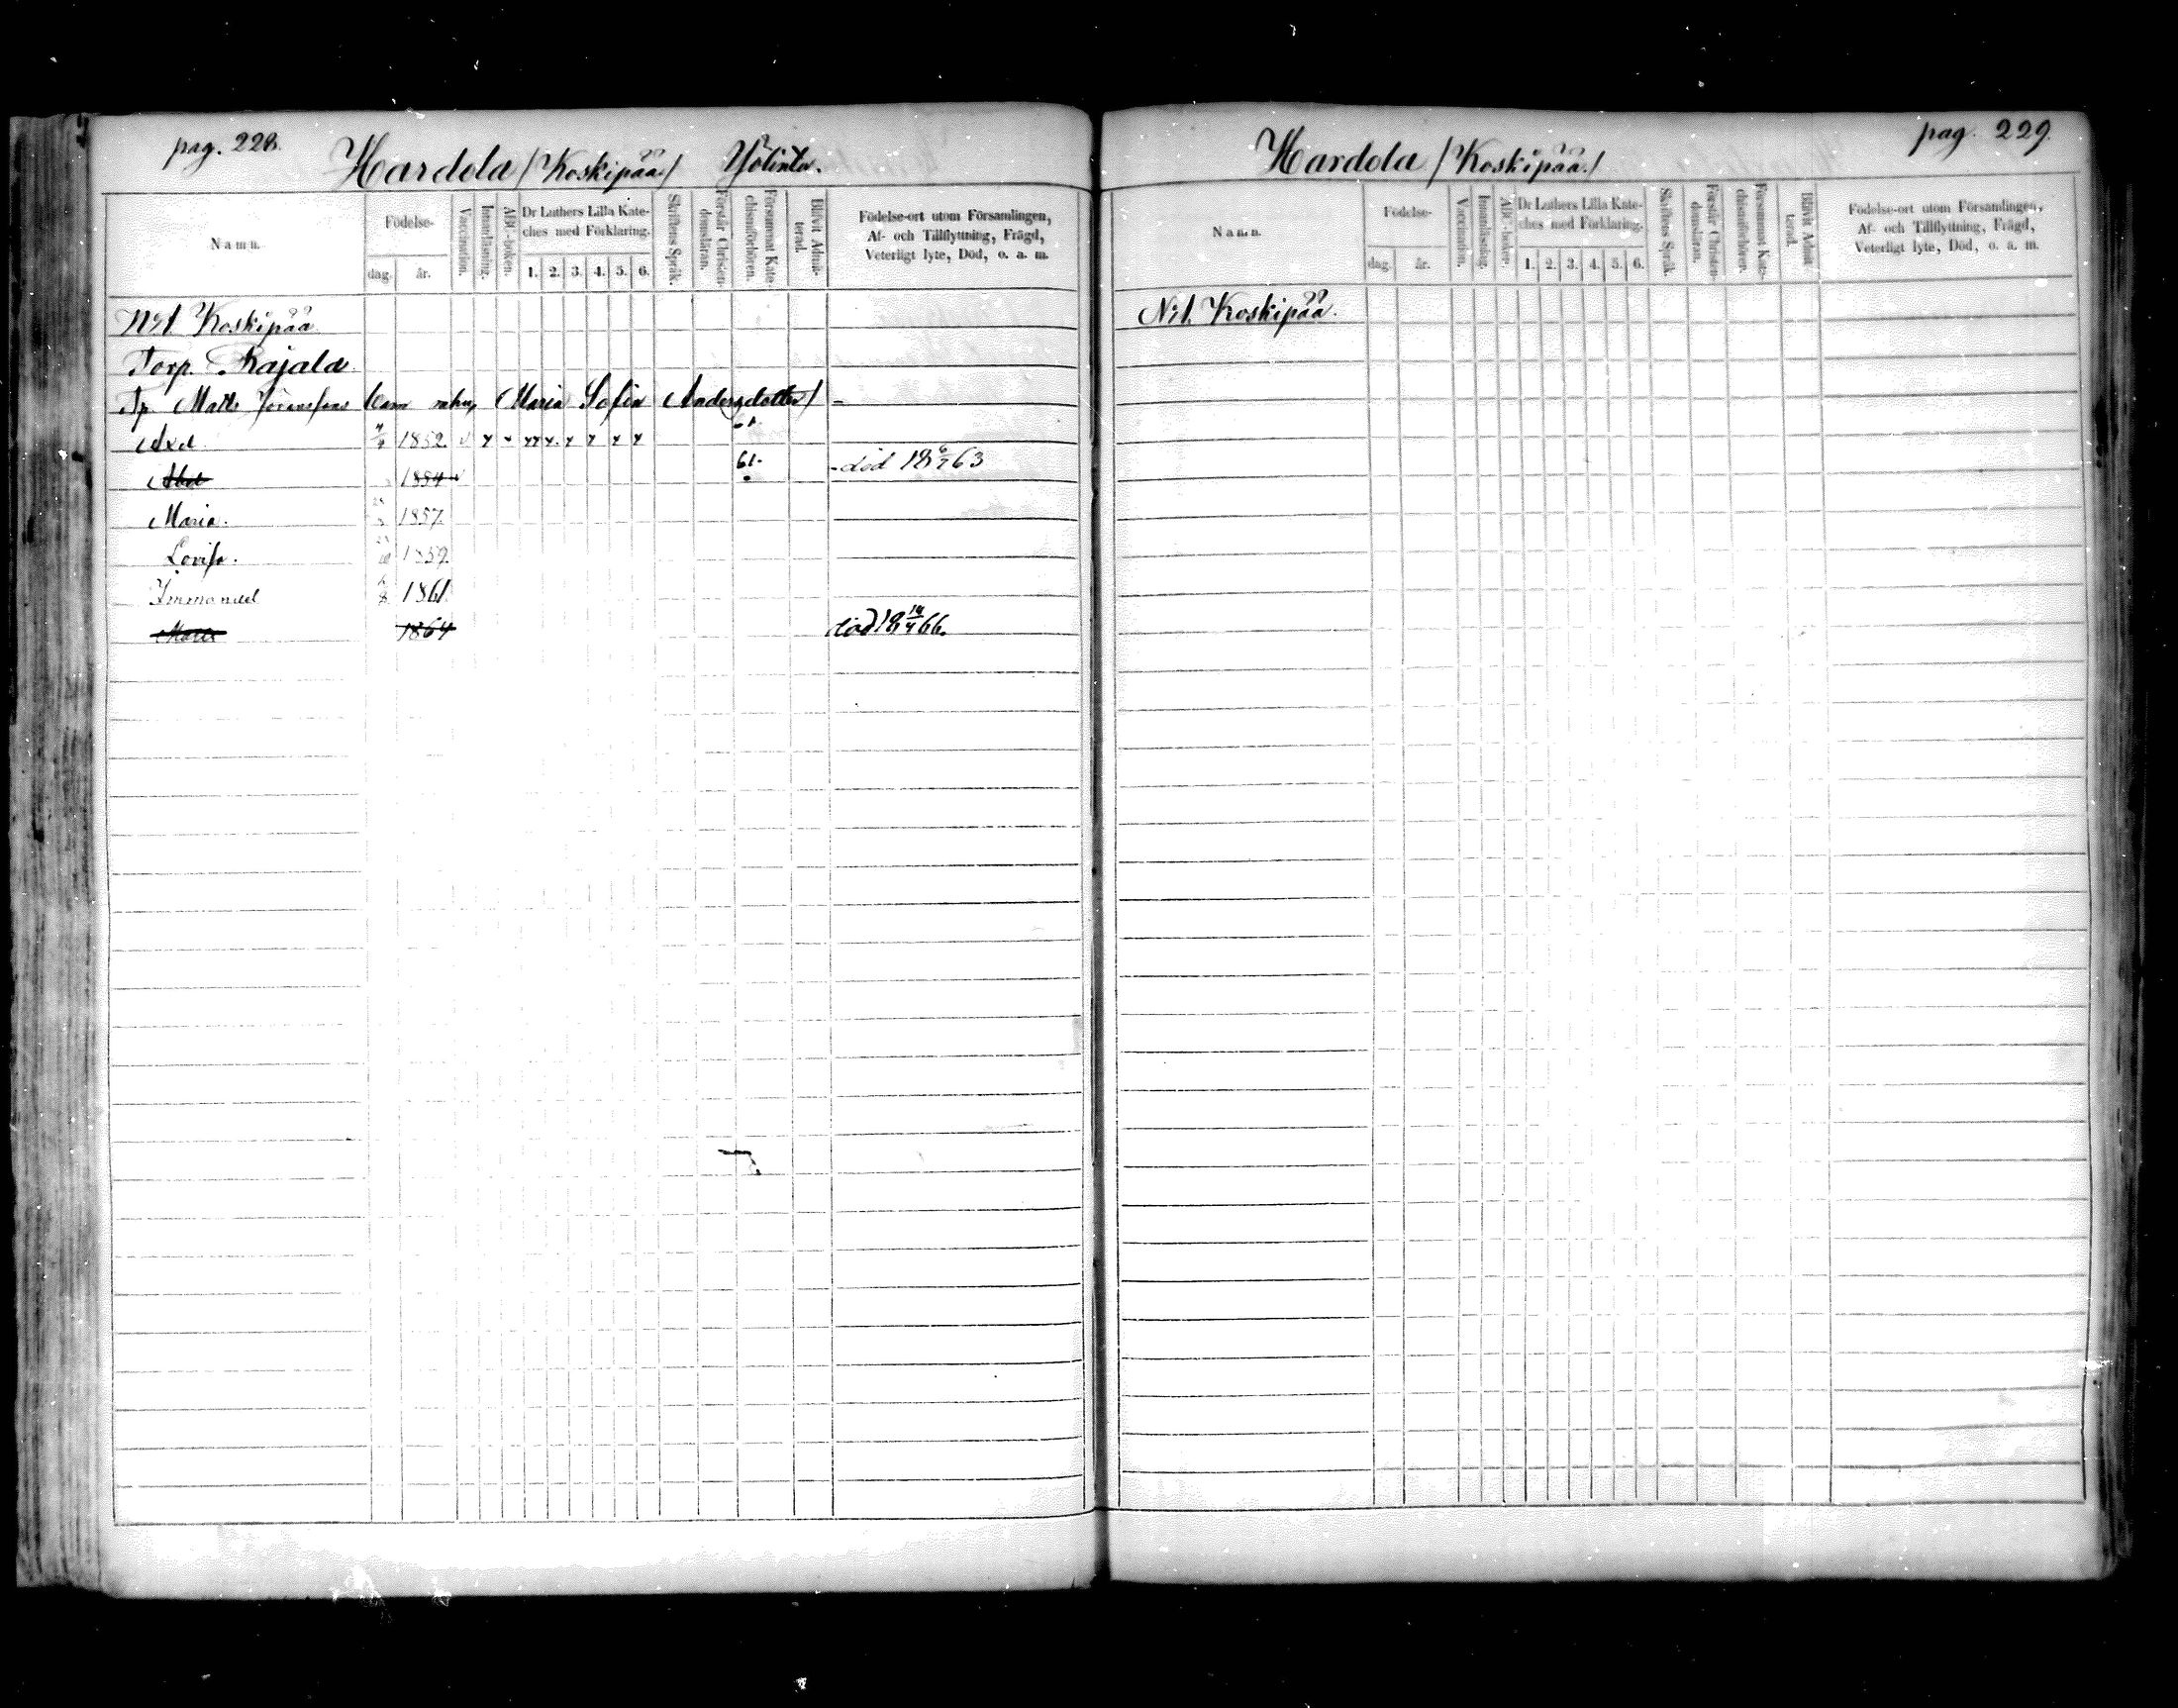 pag. 228.
Hardola /Koskipää/ Yölinta.
Namn.
Födelse-
dag.
år.
Vaccination.
Innanläsning.
ABC-boken.
Dr Luthers Lilla Kate-
ches med Förklaring.
1. 2. 3. 4. 5. 6.
Skriftens Språk.
Förstår Christen-
domsläran.
Försummat Kate-
chismiförhören.
Blifvit Admit-
terad.
Födelse-ort utom Församlingen,
Af- och Tillflyttning, Frägd,
Veterligt lyte, Död, o. a. m.
N:1 Koskipää
Torp. Rajala
Tp. Matts Maria Sofia Andersdotter/ -
Axel 1852
Abel 1854 61. - död 18 6/7 63
Maria. 1857.
Lovisa. 1859.
Immanuel 1861.
1864 död 18 14/4 66.
pag. 229.
Hardola /Koskipää/
Namn.
Födelse-
dag.
år.
Vaccination.
Innanläsning.
ABC-boken.
Dr Luthers Lilla Kate-
ches med Förklaring.
1. 2. 3. 4. 5. 6.
Skriftens Språk.
Förstår Christen-
domsläran.
Försummat Kate-
chismiförhören.
Blifvit Admit-
terad.
Födelse-ort utom Församlingen,
Af- och Tillflyttning, Frägd,
Veterligt lyte, Död, o. a. m.
N:1. Koskipää.